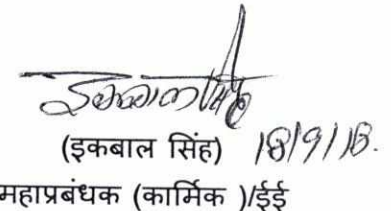 इकबाल सिंह
(इकबाल सिंह) 18/9/13.
महाप्रबंधक (कार्मिक )/ईई